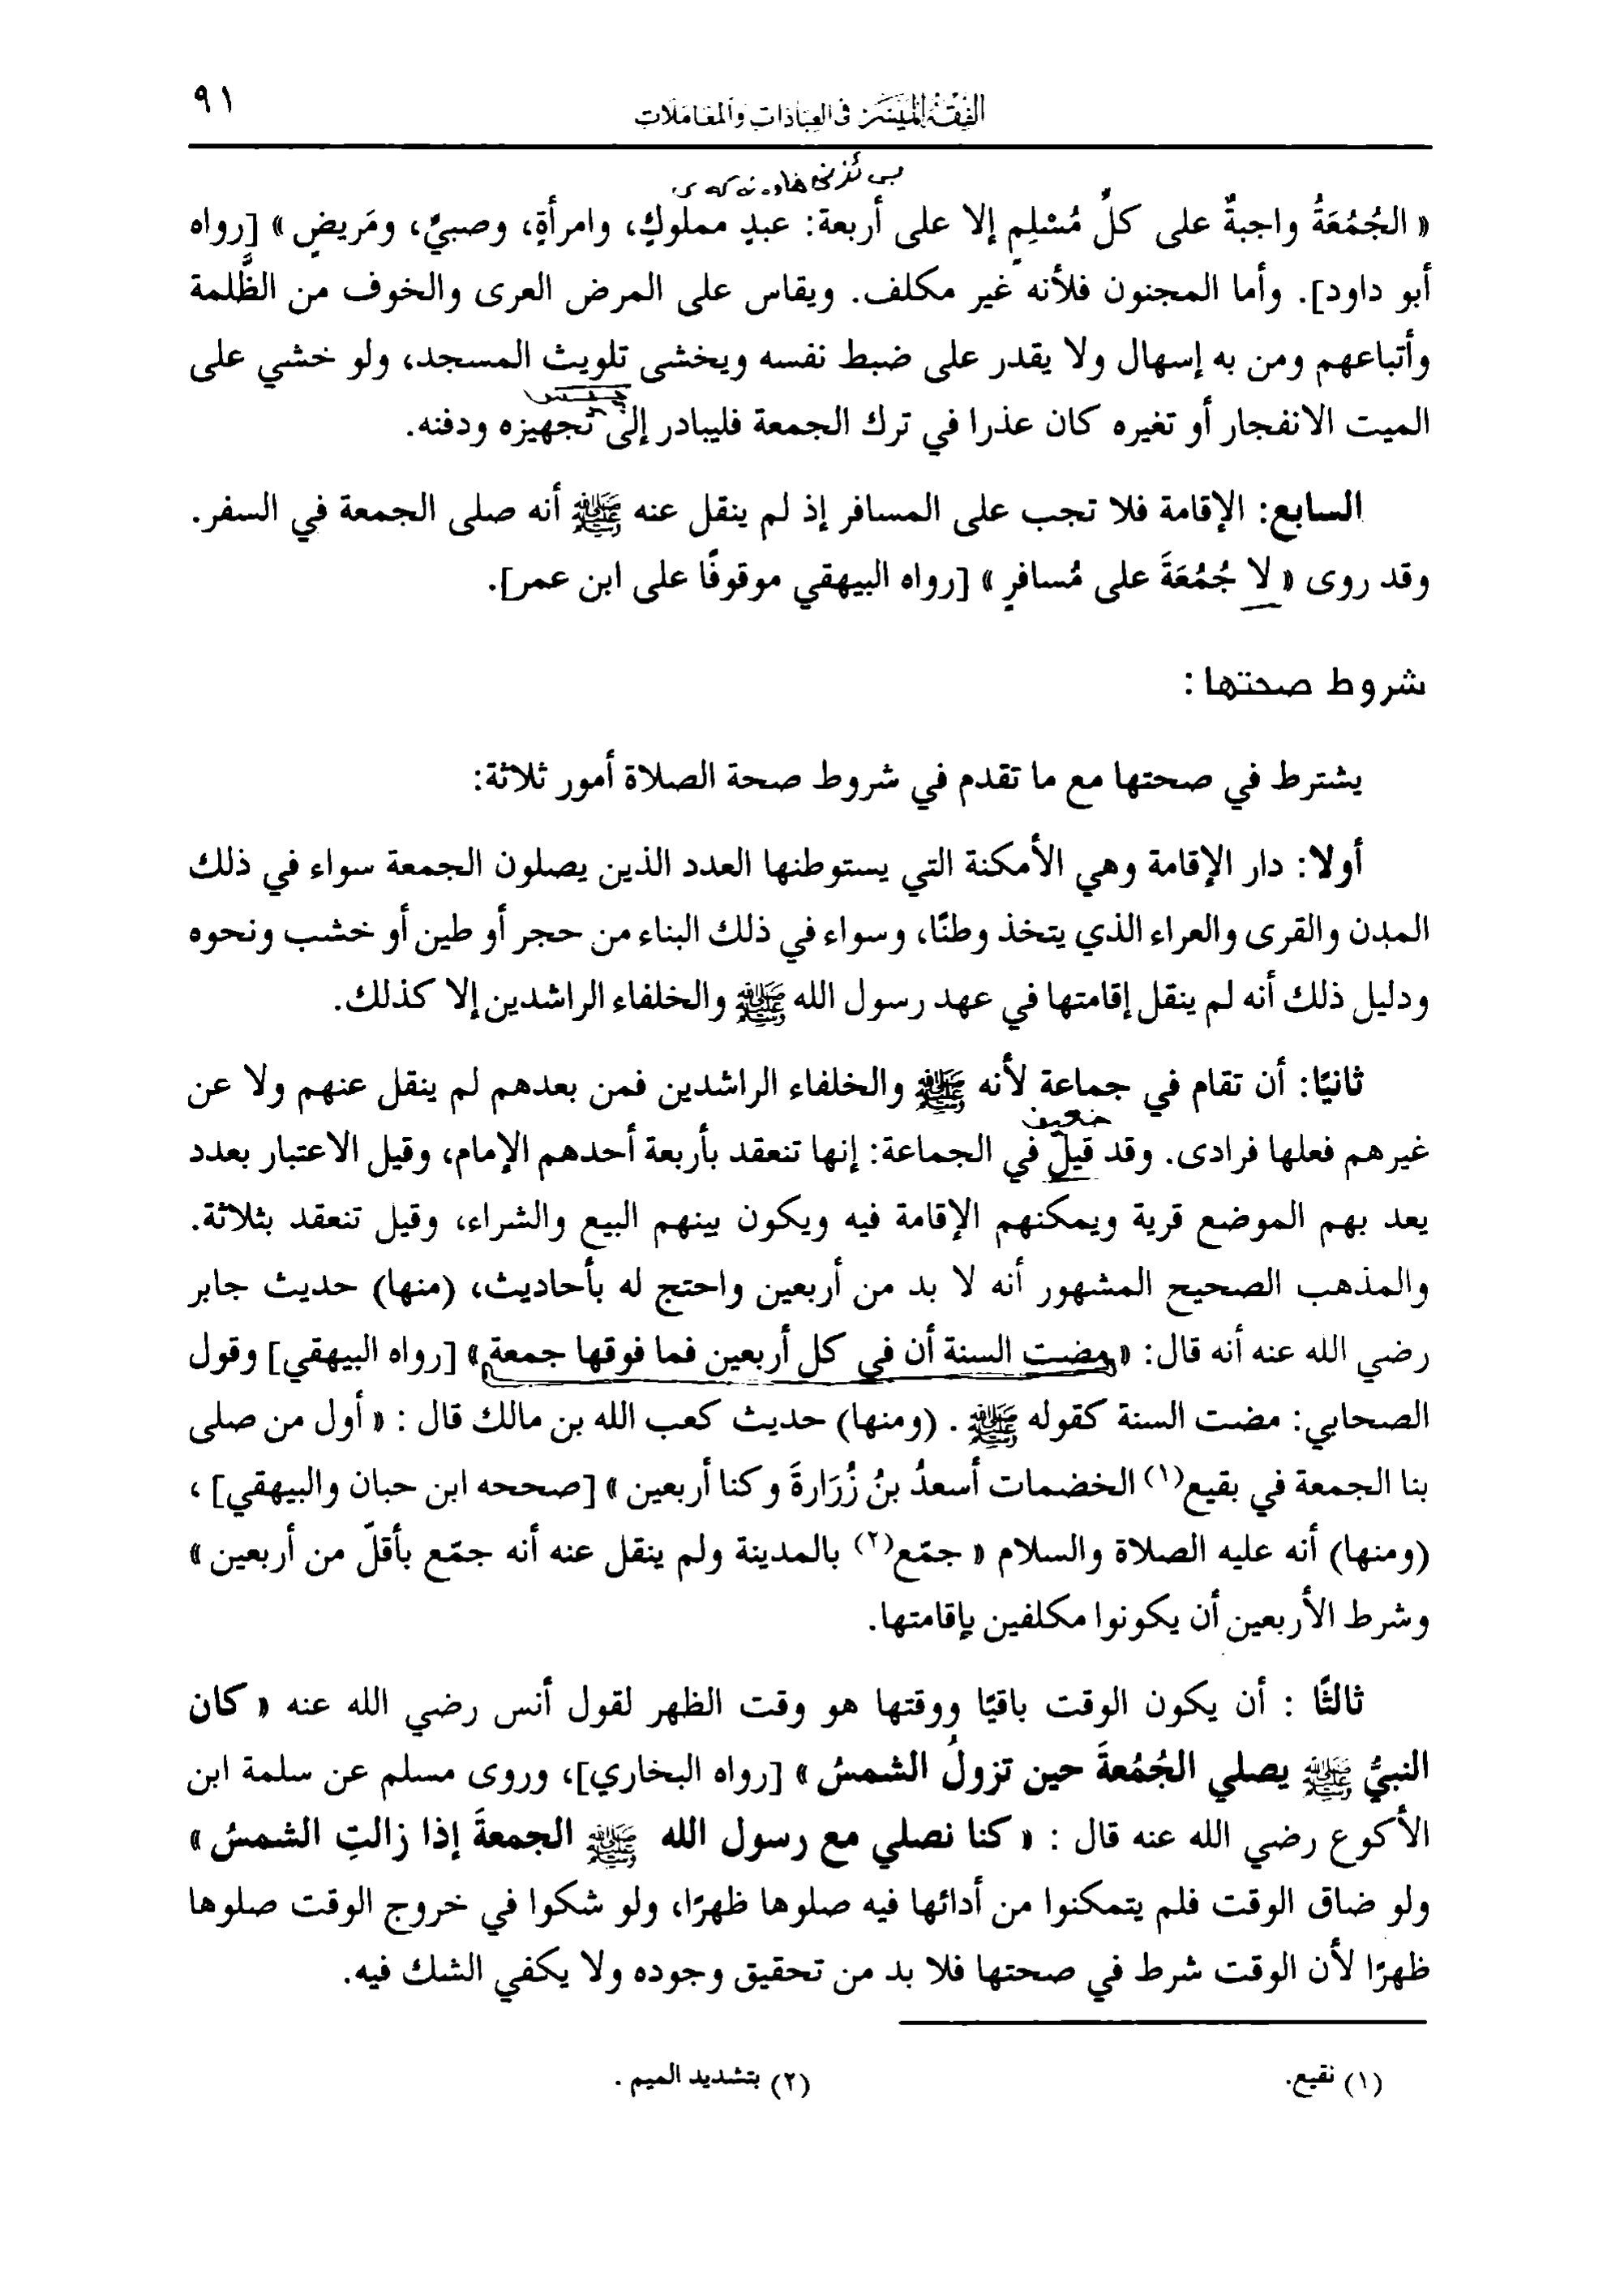 الفقه الميسر في العبادات والمعاملات
٩١
« الجُمُعَةُ واجبةٌ على كلِّ مُسْلِمٍ إلا على أربعة: عبدٍ مملوكٍ، وامرأةٍ، وصبيٍّ، ومَريضٍ » [رواه
أبو داود]. وأما المجنون فلأنه غير مكلف. ويقاس على المرض العرى والخوف من الظَّلمة
وأتباعهم ومن به إسهال ولا يقدر على ضبط نفسه ويخشى تلويث المسجد، ولو خشي على
الميت الانفجار أو تغيره كان عذرا في ترك الجمعة فليبادر إلى تجهيزه ودفنه.
السابع: الإقامة فلا تجب على المسافر إذ لم ينقل عنه ﷺ أنه صلى الجمعة في السفر.
وقد روى « لا جُمُعَةَ على مُسافرٍ » [رواه البيهقي موقوفًا على ابن عمر].
شروط صحتها :
يشترط في صحتها مع ما تقدم في شروط صحة الصلاة أمور ثلاثة:
أولا: دار الإقامة وهي الأمكنة التي يستوطنها العدد الذين يصلون الجمعة سواء في ذلك
المدن والقرى والعراء الذي يتخذ وطنًا، وسواء في ذلك البناء من حجر أو طين أو خشب ونحوه
ودليل ذلك أنه لم ينقل إقامتها في عهد رسول الله ﷺ والخلفاء الراشدين إلا كذلك.
ثانيًا: أن تقام في جماعة لأنه ﷺ والخلفاء الراشدين فمن بعدهم لم ينقل عنهم ولا عن
ضعيف
غيرهم فعلها فرادى. وقد قيل في الجماعة: إنها تنعقد بأربعة أحدهم الإمام، وقيل الاعتبار بعدد
يعد بهم الموضع قرية ويمكنهم الإقامة فيه ويكون بينهم البيع والشراء، وقيل تنعقد بثلاثة.
والمذهب الصحيح المشهور أنه لا بد من أربعين واحتج له بأحاديث، (منها) حديث جابر
رضي الله عنه أنه قال: « مضت السنة أن في كل أربعين فما فوقها جمعة » [رواه البيهقي] وقول
الصحابي: مضت السنة كقوله ﷺ . (ومنها) حديث كعب الله بن مالك قال : « أول من صلى
بنا الجمعة في بقيع(١) الخضمات أسعدُ بنُ زُرَارةَ وكنا أربعين » [صححه ابن حبان والبيهقي] ،
(ومنها) أنه عليه الصلاة والسلام « جمّع(٢) بالمدينة ولم ينقل عنه أنه جمّع بأقلّ من أربعين »
وشرط الأربعين أن يكونوا مكلفين بإقامتها.
ثالثًا : أن يكون الوقت باقيًا ووقتها هو وقت الظهر لقول أنس رضي الله عنه « كان
النبيُّ ﷺ يصلي الجُمُعةَ حين تزولُ الشمسُ » [رواه البخاري]، وروى مسلم عن سلمة ابن
الأكوع رضي الله عنه قال : « كنا نصلي مع رسول الله ﷺ الجمعةَ إذا زالتِ الشمسُ »
ولو ضاق الوقت فلم يتمكنوا من أدائها فيه صلوها ظهرًا، ولو شكوا في خروج الوقت صلوها
ظهرًا لأن الوقت شرط في صحتها فلا بد من تحقيق وجوده ولا يكفي الشك فيه.
(١) نقيع.
(٢) بتشديد الميم .